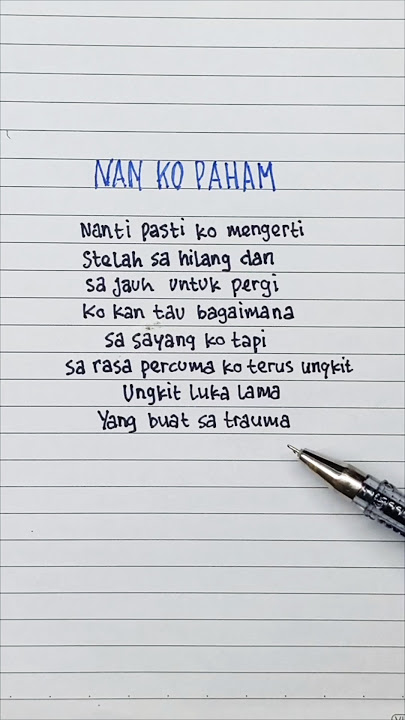 NAN KO PAHAM
Nanti pasti ko mengerti
Stelah sa hilang dan
sa jauh untuk pergi
Ko kan tau bagaimana
sa sayang ko tapi
sa rasa percuma ko terus ungkit
Ungkit luka lama
Yang buat sa trauma